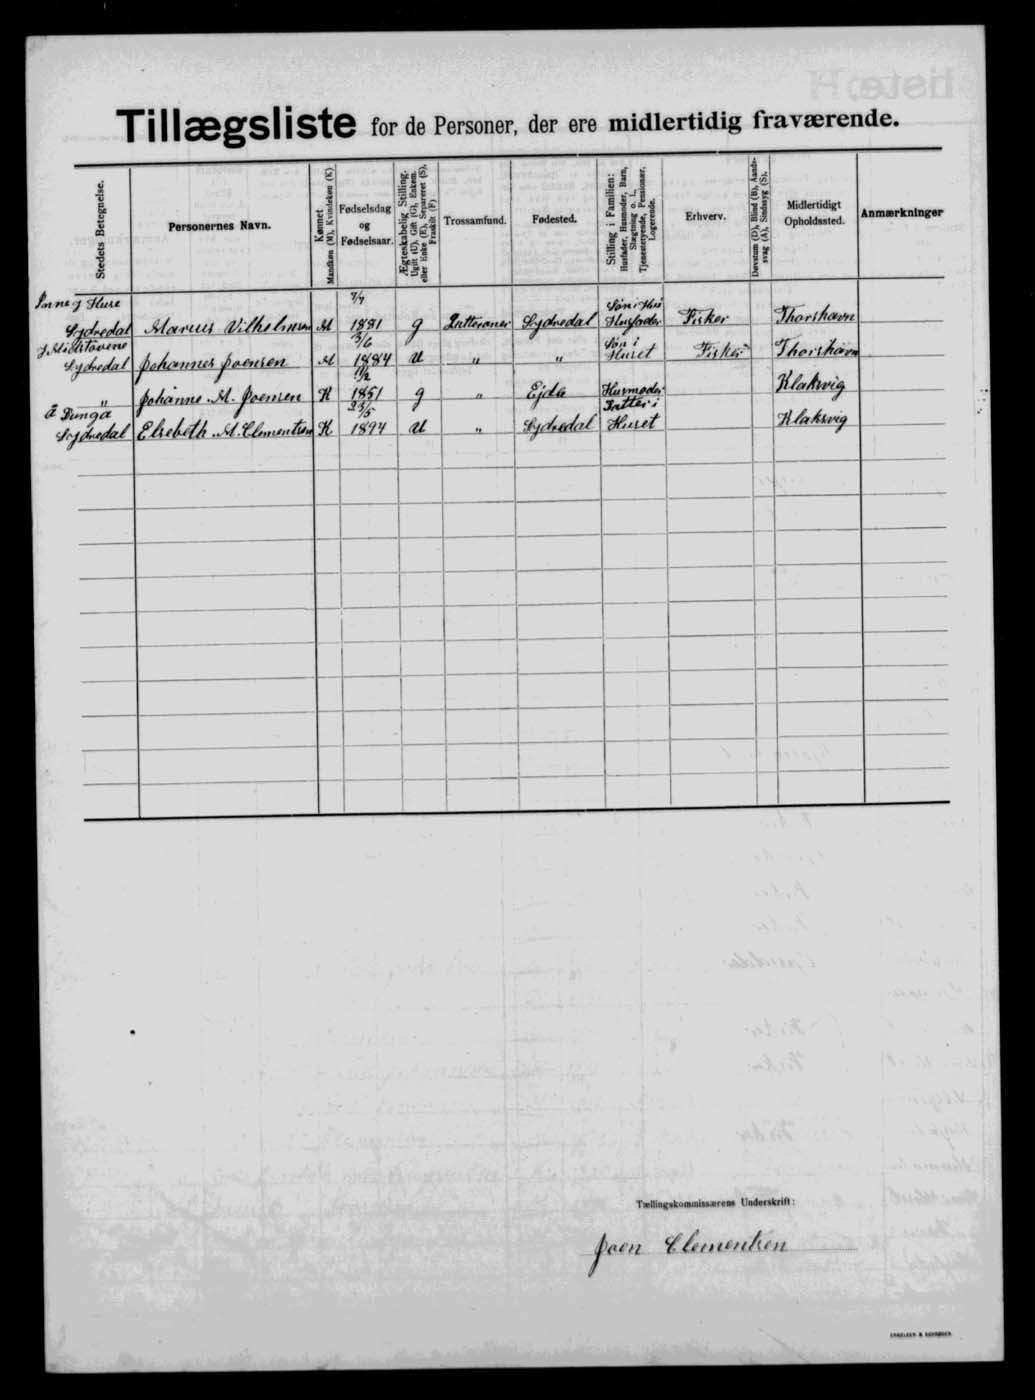 Tillægsliste for de Personer, der ere midlertidig fraværende.
Stedets Betegnelse.
Personernes Navn.
Kønnet
Mandkøn (M), Kvindekøn (K)
Fødselsdag
og
Fødselsaar.
Ægteskabelig Stilling.
Ugift (U), Gift (G), Enkem.
eller Enke (E), Separeret (S),
Fraskilt (F)
Trossamfund.
Fødested.
Stilling i Familien:
Husfader, Husmoder, Barn,
Slægtning o. l.,
Tjenestetyende, Pensionær,
Logerende.
Erhverv.
Døvstum (D), Blind (B), Aands-
svag (A), Sindssyg (S),
Midlertidigt
Opholdssted.
Anmærkninger
Inne j Huse 7/4 Søn i Hus
Sydredal Marius Vilhelmsen M 1881 g Lutteraner Sydredal Husfader Fisker Thorshavn
j Midstovene 3/6 Søn i
Sydredal Johannes Joensen M 1884 U " " Huset Fisker Thorshavn
11/2
" Johanne M. Joensen K 1851 g " Ejde Husmoder Klaksvig
Å Dunga 23/5 Datter i
Sydredal Elsebeth M. Clementsen K 1894 U " Sydredal Huset Klaksvig
Tællingskommissærens Underskrift:
Joen Clementsen